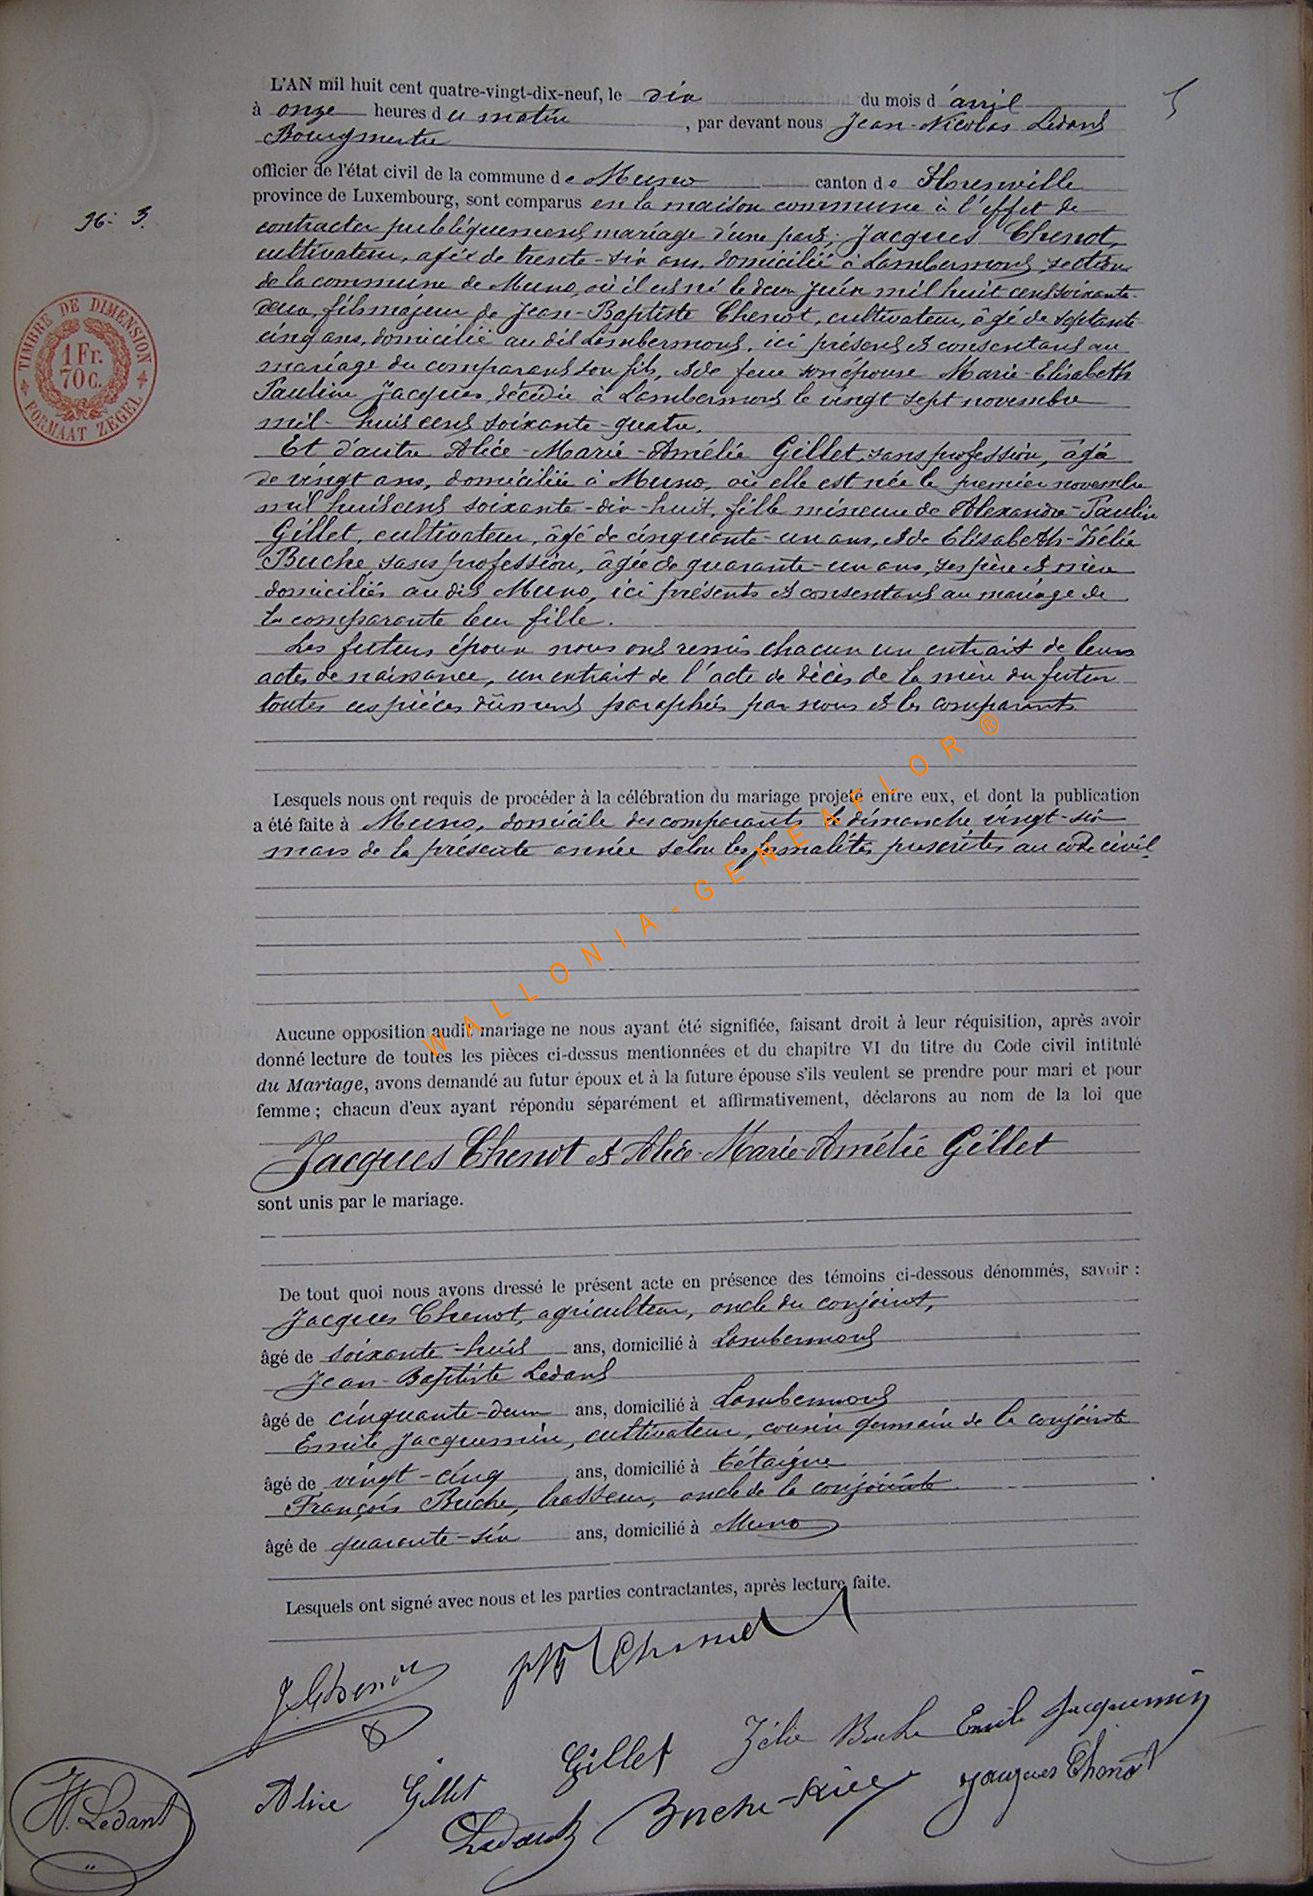 L'AN mil huit cent quatre-vingt-dix-neuf, le dix du mois d'avril
5
à onze heures du matin, par devant nous Jean-Nicolas Ledant
Bourgmestre
officier de l'état civil de la commune de Muno canton de Florenville
province de Luxembourg, sont comparus en la maison commune à l'effet de
contracter publiquement mariage d'une part, Jacques Chenot,
cultivateur, agé de trente-six ans, domicilié à Lambermont, section
de la commune de Muno, où il est né le deux juin mil huit cent soixante-
deux, fils majeur de Jean-Baptiste Chenot, cultivateur, âgé de septante-
cinq ans, domicilié au dit Lambermont, ici présent et consentant au
mariage du comparant son fils, et de feue son épouse Marie-Elisabeth
Pauline Jacques, décédée à Lambermont le vingt sept novembre
mil-huit cent soixante-quatre.
Et d'autre Alice-Marie-Amélie Gillet, sans profession, âgée
de vingt ans, domiciliée à Muno, où elle est née le premier novembre
mil huit cent soixante-dix-huit, fille mineure de Alexandre-Paulin
Gillet, cultivateur, âgé de cinquante-un ans, et de Elisabeth-Zélie
Buche, sans profession, âgée de quarante-un ans, ses père et mère
domiciliés au dit Muno, ici présents et consentant au mariage de
la comparante leur fille.
Les futurs époux nous ont remis chacun un extrait de leurs
actes de naissance, un extrait de l'acte de décès de la mère du futur
toutes ces pièces dûment paraphées par nous et les comparants.
Lesquels nous ont requis de procéder à la célébration du mariage projeté entre eux, et dont la publication
a été faite à Muno, domicile des comparants le dimanche vingt-six
mars de la présente année selon les formalités prescrites au code civil.
WALLONIA-GENEAFLOR®
Aucune opposition audit mariage ne nous ayant été signifiée, faisant droit à leur réquisition, après avoir
donné lecture de toutes les pièces ci-dessus mentionnées et du chapitre VI du titre du Code civil intitulé
du Mariage, avons demandé au futur époux et à la future épouse s'ils veulent se prendre pour mari et pour
femme ; chacun d'eux ayant répondu séparément et affirmativement, déclarons au nom de la loi que
Jacques Chenot et Alice-Marie-Amélie Gillet
sont unis par le mariage.
De tout quoi nous avons dressé le présent acte en présence des témoins ci-dessous dénommés, savoir :
Jacques Chenot, agriculteur, oncle du conjoint,
âgé de soixante-huit ans, domicilié à Lambermont
Jean-Baptiste Ledant
âgé de cinquante-deux ans, domicilié à Lambermont
Emile Jacquemin, cultivateur, cousin germain de la conjointe
âgé de vingt-cinq ans, domicilié à Tétaigne
François Buche, brasseur, oncle de la conjointe
âgé de quarante-six ans, domicilié à Muno
Lesquels ont signé avec nous et les parties contractantes, après lecture faite.
J. Chenot
Chenot
Alice Gillet
Gillet
Zélie Buche
Emile Jacquemin
Ledant
Jacques Chenot
Ledant
TIMBRE DE DIMENSION
1 Fr.
70 C.
FORMAAT ZEGEL